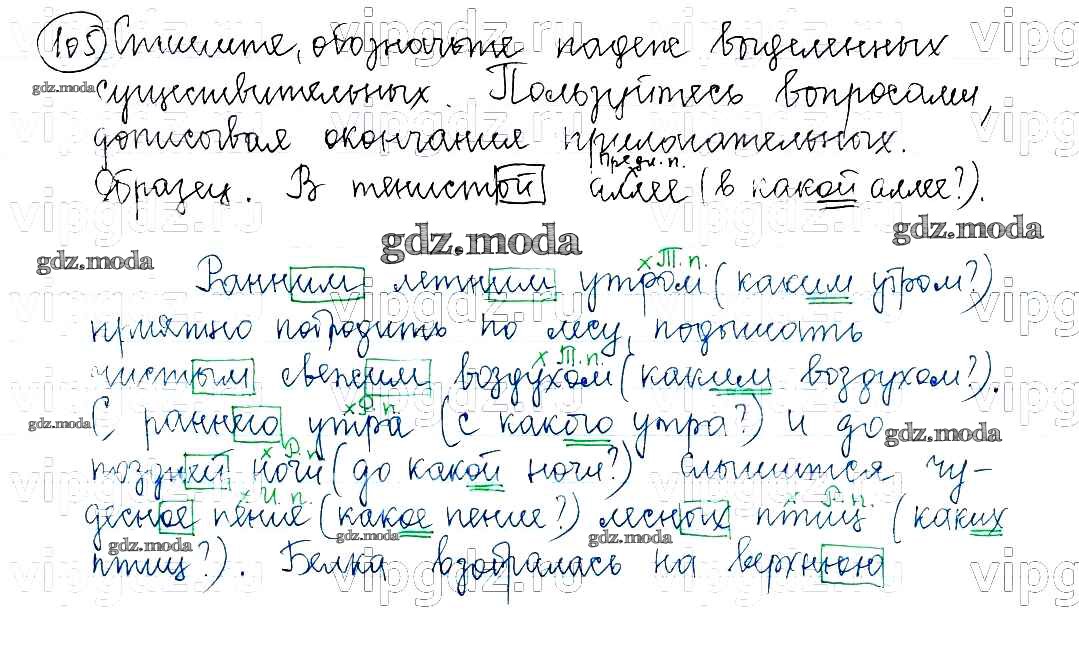 105 Спишите, обозначьте падеж выделенных
существительных. Пользуйтесь вопросами,
дописывая окончания прилагательных.
Предл. п.
Образец. В тенистой аллее (в какой аллее?).
gdz.moda
х Т. п.
Ранним летним утром (каким утром?)
приятно побродить по лесу, подышать
х Т. п.
чистым свежим воздухом (каким воздухом?).
х Р. п.
С раннего утра (с какого утра?) и до
х Р. п.
поздней ночи (до какой ночи?) слышится чу-
х И. п. х Р. п.
десное пение (какое пение?) лесных птиц (каких
птиц?). Белка взобралась на верхнюю